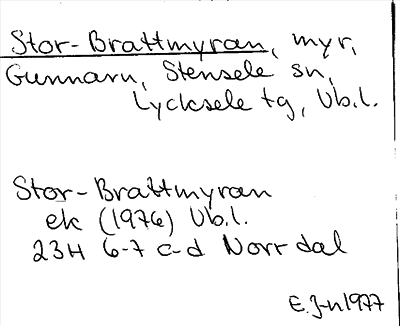 Stor-Brattmyran, myr,
Gunnarn, Stensele sn,
Lycksele tg, Vb.l.
Stor-Brattmyran
ek (1976) Vb.l.
23H 6-7 c-d Norrdal
E. J-n 1977